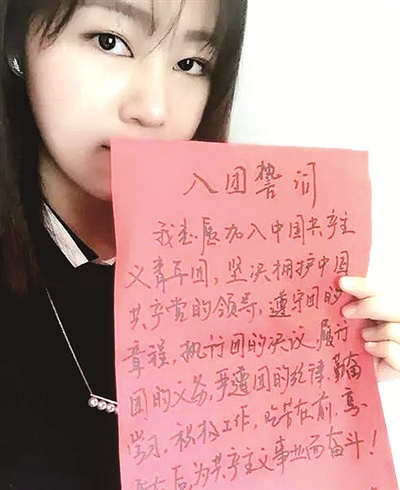 入团誓词
我志愿加入中国共产主
义青年团，坚决拥护中国
共产党的领导，遵守团的
章程，执行团的决议，履行
团的义务，严遵团的纪律，勤奋
学习，积极工作，吃苦在前，享
在后，为共产主义事业而奋斗！